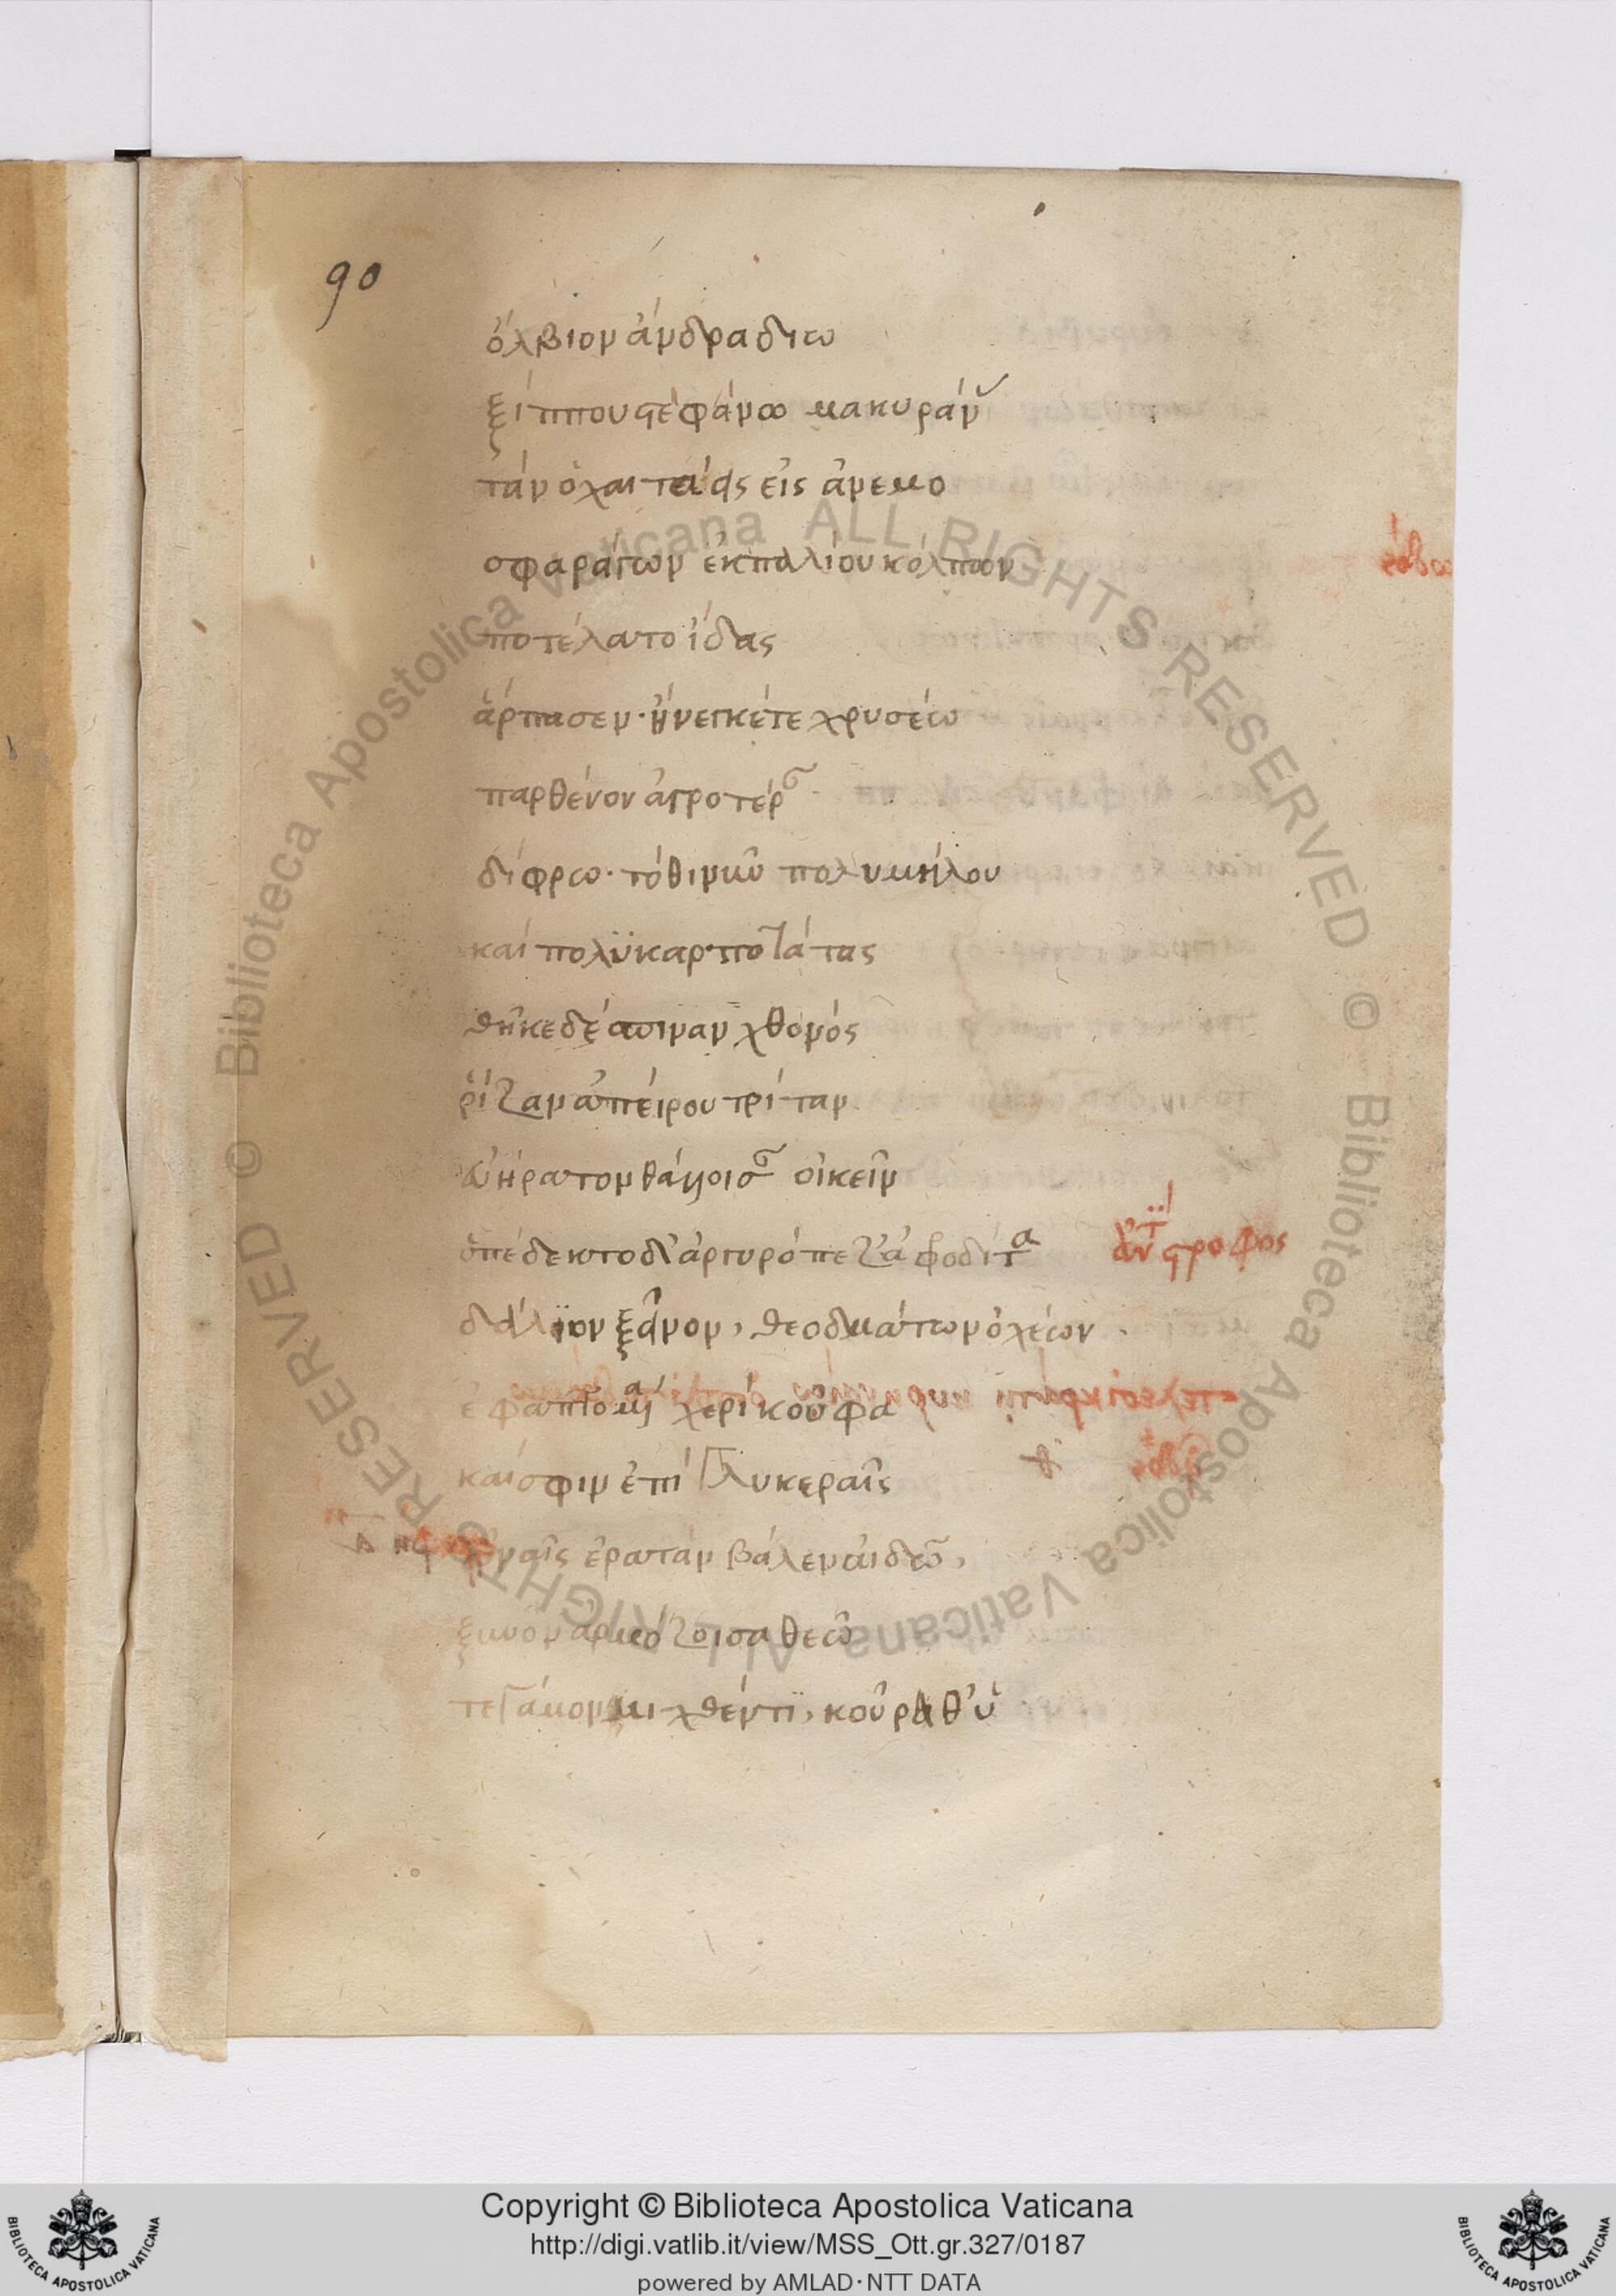 90
ὄλβιον ἄνδρα διω
ξίππου στεφάνωμα κυράνας
τὰν ὁ χαιτάεις ἀνεμο
σφαράγων ἐκ παλίου κόλπων
ποτὲ λατοΐδας
ἅρπασεν· ἤνεγκέ τε χρυσέω
παρθένον ἀγροτέραν
δίφρω· τόθι νιν πολυμήλου
καὶ πολυκαρποτάτας
θῆκε δέσποιναν χθονός
ῥίζαν ἀπείρου τρίταν
εὐήρατον θάλλοισαν οἰκεῖν
ὑπέδεκτο δ' ἀργυρόπεζ' ἀφροδίτα
ἀντίστροφος
δάλιον ξεῖνον, θεοδμάτων ὀχέων
ἐφαπτομένα χερὶ κούφα
καί σφιν ἐπὶ γλυκεραῖς
εὐναῖς ἐρατὰν βάλεν αἰδῶ,
ξυνὸν ἁρμόζοισα θεῶ
τε γάμον μιχθέντι, κούρα θ' ὑ
Copyright © Biblioteca Apostolica Vaticana
http://digi.vatlib.it/view/MSS_Ott.gr.327/0187
powered by AMLAD·NTT DATA
BIBLIOTECA APOSTOLICA VATICANA
BIBLIOTECA APOSTOLICA VATICANA
© Biblioteca Apostolica Vaticana ALL RIGHTS RESERVED © Biblioteca Apostolica Vaticana ALL RIGHTS RESERVED